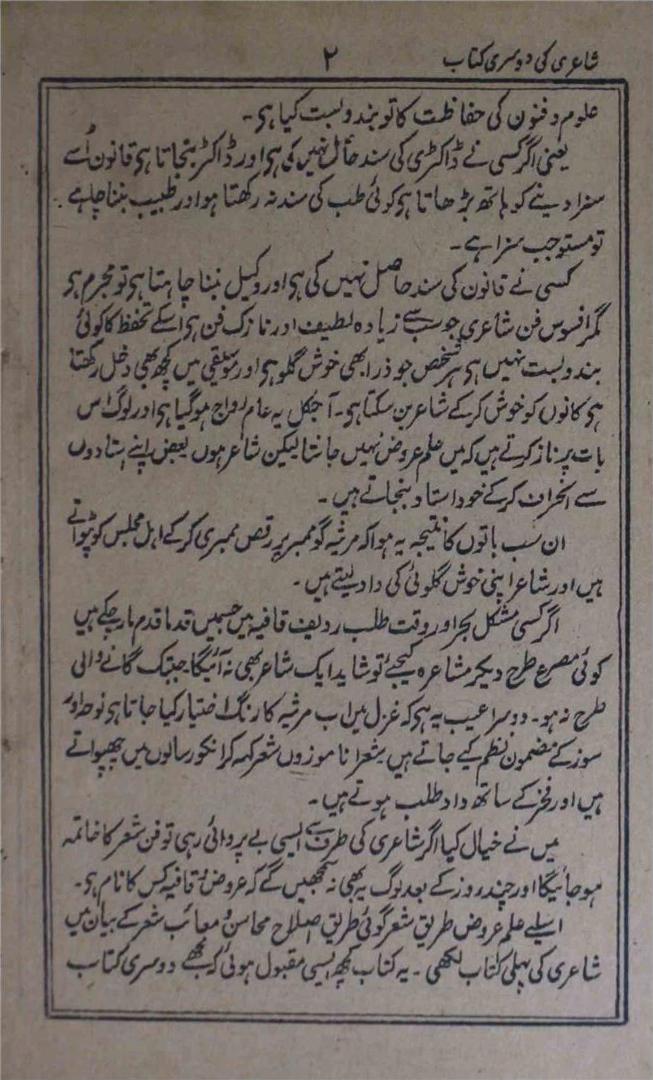 شاعری کی دوسری کتاب ۲
علوم و فنون کی حفاظت کا تو بندوبست کیا ہی۔
یعنی اگر کسی نے ڈاکٹری کی سند حاصل نہیں کی ہی اور ڈاکٹر بنجاتا ہی قانون اُسے
سزا دینے کو ہاتھ بڑھاتا ہی کوئی طب کی سند نہ رکھتا ہو اور طبیب بننا چاہے
تو مستوجب سزا ہے۔
کسی نے قانون کی سند حاصل نہیں کی ہی اور وکیل بننا چاہتا ہی تو مجرم ہی
مگر افسوس فن شاعری جو سب سے زیادہ لطیف اور نازک فن ہی اسکے تحفظ کا کوئی
بندوبست نہیں ہی ہر شخص جو ذرا بھی خوش گلو ہی اور موسیقی میں کچھ بھی دخل رکھتا
ہی کانوں کو خوش کر کے شاعر بن سکتا ہی۔ آجکل یہ عام رواج ہو گیا ہی اور لوگ اس
بات پر ناز کرتے ہیں کہ میں علم عروض نہیں جانتا لیکن شاعر ہوں بعض اپنے استادوں
سے انحراف کر کے خود استاد بنجاتے ہیں۔
ان سب باتوں کا نتیجہ یہ ہوا کہ مرثیہ گو ممبر پر رقص ممبری کر کے اہل مجلس کو
ہیں اور شاعر اپنی خوش گلوئی کی داد لیتے ہیں۔
اگر کسی مشکل بحر اور وقت طلب ردیف قافیہ میں جسمیں قدما قدم مار چکے ہیں
کوئی مصرع طرح دیکر مشاعرہ کیجئے تو شاید ایک شاعر بھی نہ آئیگا۔ جبتک گانے والی
طرح نہ ہو۔ دوسرا عیب یہ ہی کہ غزل میں اب مرثیہ کا رنگ اختیار کیا جاتا ہی نوحہ اور
سوز کے مضمون نظم کیے جاتے ہیں شعرا ناموزوں شعر کہہ کر انکو رسالوں میں چھپواتے
ہیں اور فخر کے ساتھ داد طلب ہوتے ہیں۔
میں نے خیال کیا اگر شاعری کی طرف سے ایسی بے پروائی رہی تو فن شعر کا خاتمہ
ہو جائیگا اور چند روز کے بعد لوگ یہ بھی نہ سمجھیں گے کہ عروض و قافیہ کس کا نام ہی۔
اسلیے علم عروض طریق شعر گوئی طریق اصلاح محاسن و معائب شعر کے بیان میں
شاعری کی پہلی کتاب لکھی۔ یہ کتاب کچھ ایسی مقبول ہوئی کہ مجھے دوسری کتاب